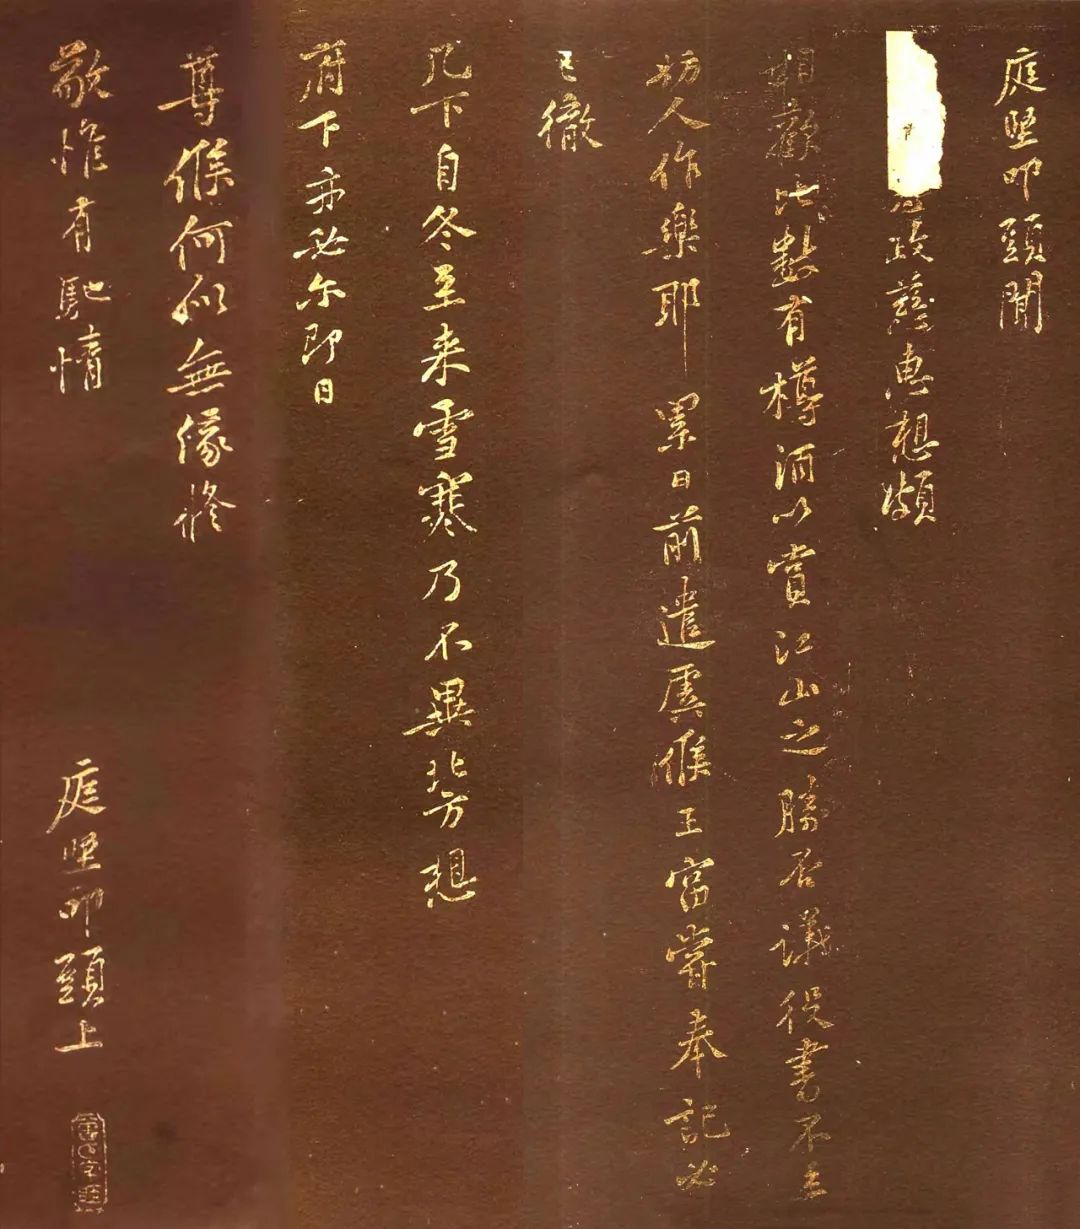 庭堅叩頭聞
政慈惠想頗
相歡比數有樽酒以賞江山之勝否議役書不至
妨人作樂耶累日前遣虞候王富嘗奉記必
已徹
几下自冬至来雪寒乃不異北方想
府下亦必尔即日
尊候何似無緣修
敬惟有馳情
庭堅叩頭上